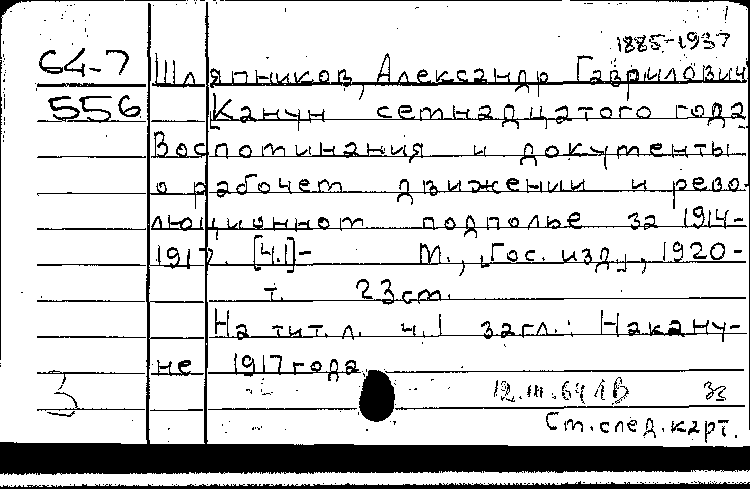 1885-1937
64-7 Шляпников, Александр Гаврилович
556 Канун семнадцатого года
Воспоминания и документы
о рабочем движении и рево-
люционном подполье за 1914-
1917. [Ч.1]- М., "Гос. изд.", 1920-
т. 23 см.
На тит. л. ч.1 загл.: Накану-
не 1917 года
3 12.III.64 ЛВ
См. след. карт.